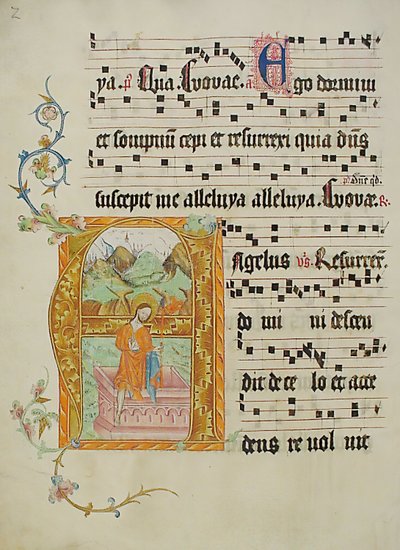 2
ya. p̄. Qua. Evovae. a. Ego dormivi
et sompnū cepi et resurrexi quia dn̄s
p̄. Dn̄e qd.
suscepit me alleluya alleluya. Evovae. R.
ANgelus v̄s. Resurrex̄.
do mi ni descen
dit de ce lo et acce
dens re vol vit